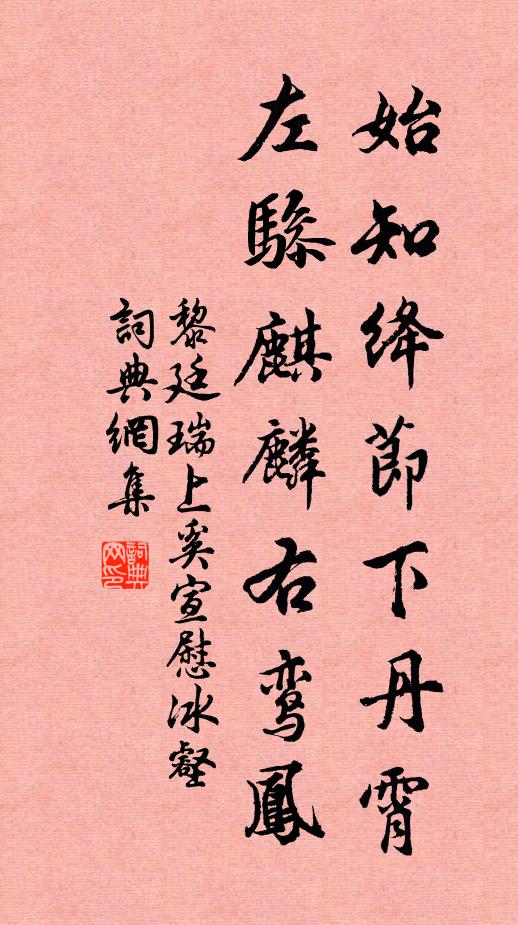 始知绛節下丹霄
左驂麒麟右鸾鳳
黎廷瑞上奚宣慰冰壑
詞典網集
詞典网印